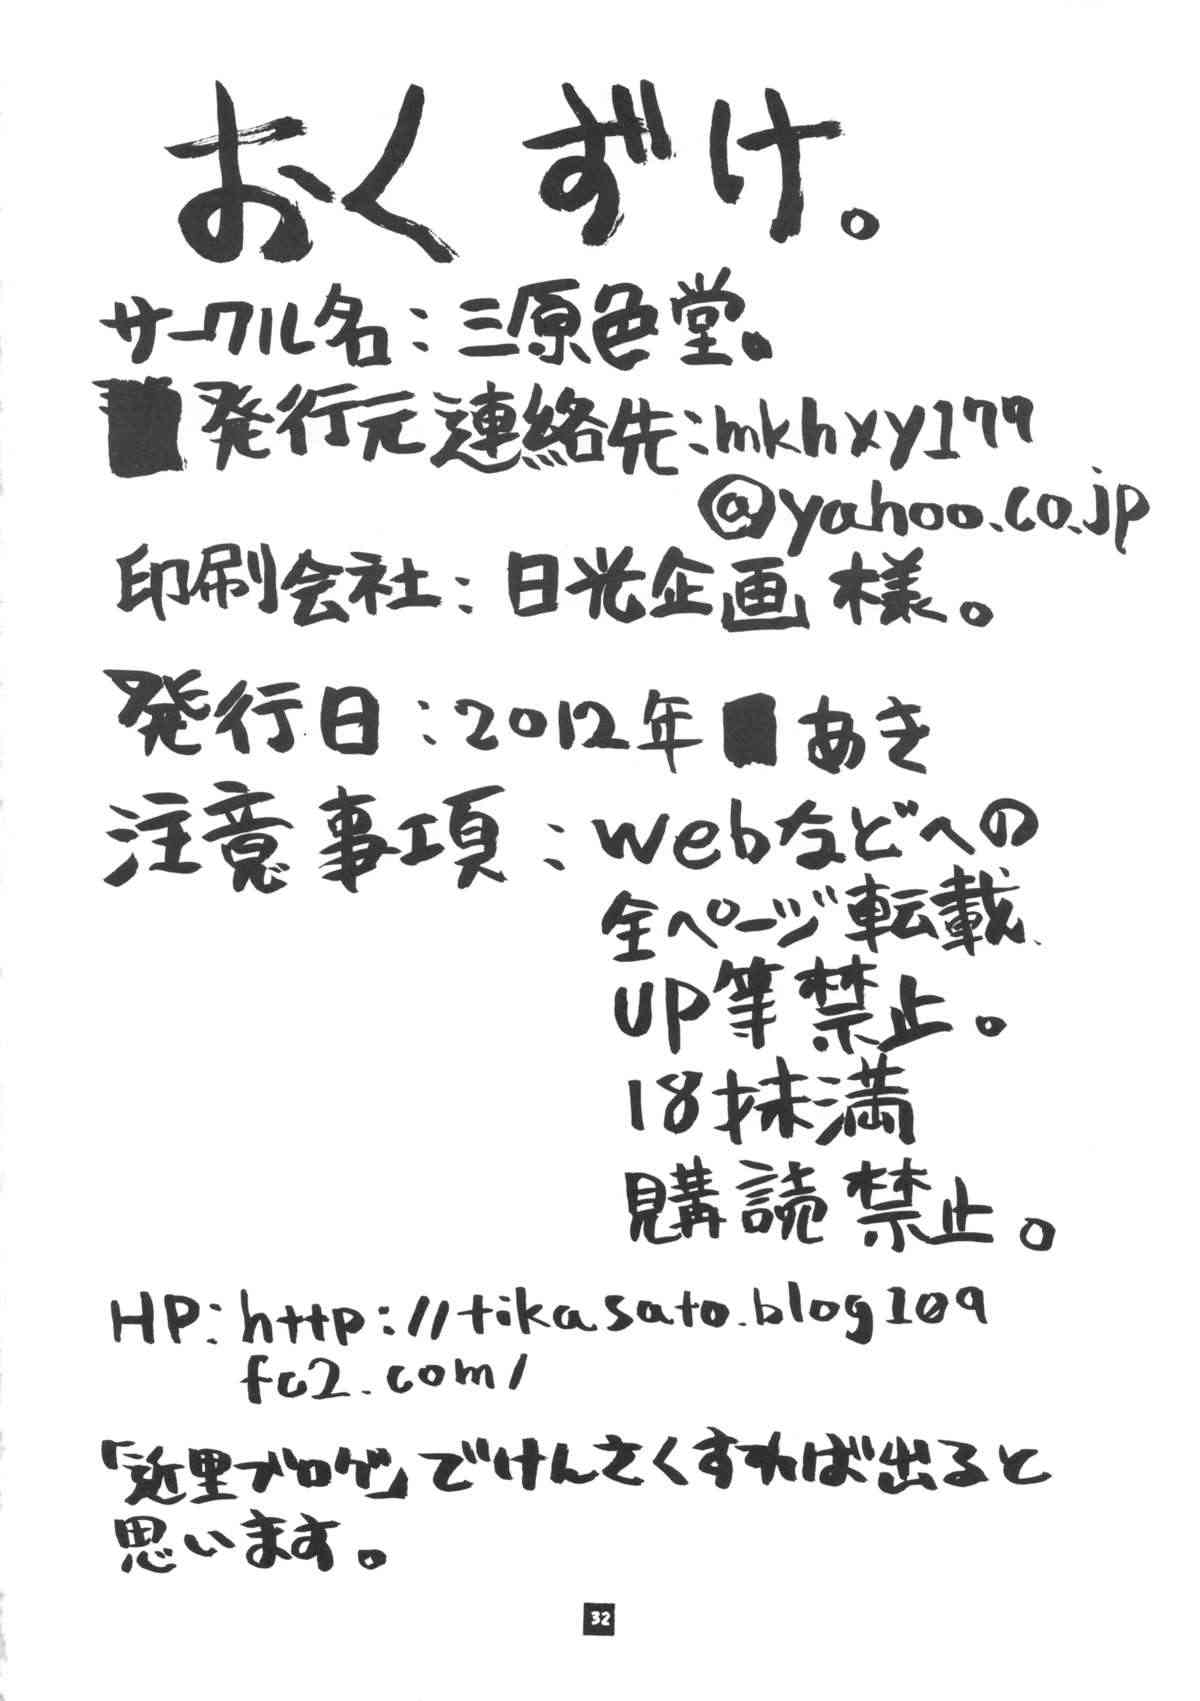 おくずけ。
サークル名:三原色堂。
発行元連絡先:mkhxy179
@yahoo.co.jp
印刷会社:日光企画様。
発行日:2012年 あき
注意事項:webなどへの
全ページ転載
UP等禁止。
18抹満
購読禁止。
HP:http://tikasato.blog109
fc2.com/
「近里ブログ」でけんさくすれば出ると
思います。
32